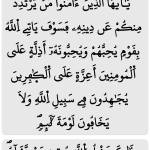 يَٰأَيُّهَا ٱلَّذِينَ ءَامَنُوا مَنْ يَّرْتَدِدْ
مِنكُمْ عَن دِينِهِۦ فَسَوْفَ يَأْتِي ٱللَّهُ
بِقَوْمٍ يُحِبُّهُمْ وَيُحِبُّونَهُۥٓ أَذِلَّةٍ عَلَى
ٱلْمُؤْمِنِينَ أَعِزَّةٍ عَلَى ٱلْكَٰفِرِينَ
يُجَٰهِدُونَ فِي سَبِيلِ ٱللَّهِ وَلَا
يَخَافُونَ لَوْمَةَ لَآئِمٍ